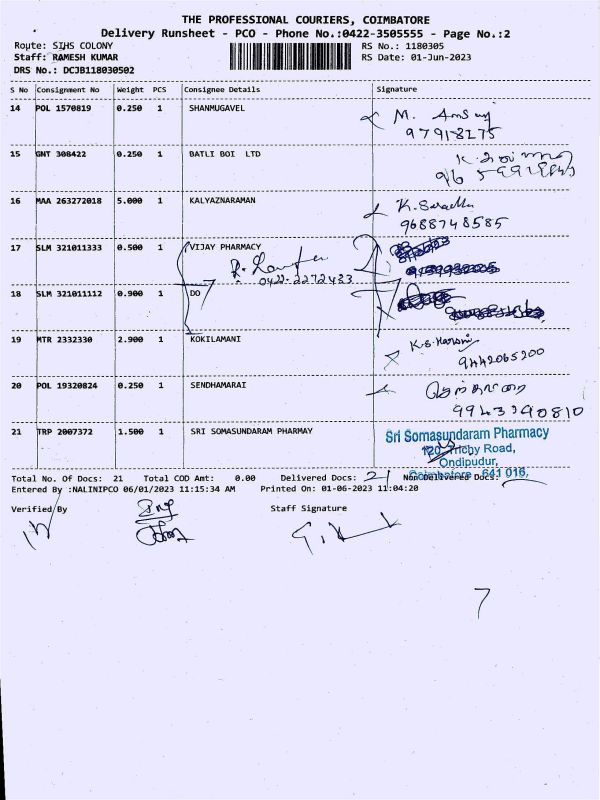 THE PROFESSIONAL COURIERS, COIMBATORE
Delivery Runsheet - PCO - Phone No.:0422-3505555 - Page No.:2
Route: SIHS COLONY RS No.: 1180305
Staff: RAMESH KUMAR RS Date: 01-Jun-2023
DRS No.: DCJB118030502
S No Consignment No Weight PCS Consignee Details Signature
14 POL 1570819 0.250 1 SHANMUGAVEL
15 GNT 308422 0.250 1 BATLI BOI LTD
16 MAA 263272018 5.000 1 KALYAZNARAMAN K.
9688748585
17 SLM 321011333 0.500 1 VIJAY PHARMACY
0422-2272433
18 SLM 321011112 0.900 1 DO
19 MTR 2332330 2.900 1 KOKILAMANI K.S.
9442065200
20 POL 19320824 0.250 1 SENDHAMARAI
9943390810
21 TRP 2007372 1.500 1 SRI SOMASUNDARAM PHARMAY Sri Somasundaram Pharmacy
120, Trichy Road,
Ondipudur,
Coimbatore - 641 016.
Total No. Of Docs: 21 Total COD Amt: 0.00 Delivered Docs: 21 Non Delivered Docs:
Entered By :NALINIPCO 06/01/2023 11:15:34 AM Printed On: 01-06-2023 11:04:20
Verified By Staff Signature
7